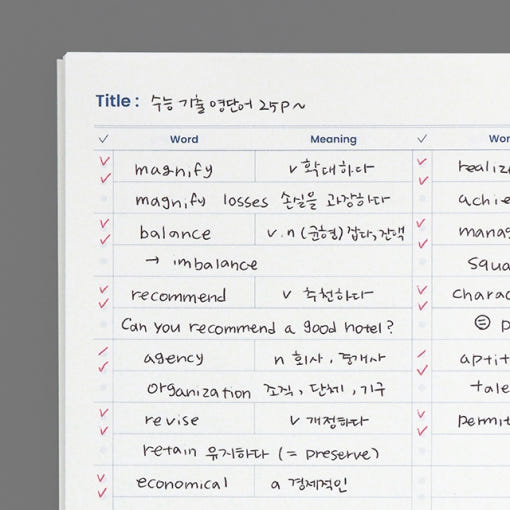 Title : 수능 기출 영단어 25P ~
✓ Word Meaning ✓
magnify v 확대하다
magnify losses 손실을 과장하다
balance v.n (균형) 잡다, 잔액
→ imbalance
recommend v 추천하다
Can you recommend a good hotel?
agency n 회사, 중개사
organization 조직, 단체, 기구
revise v 개정하다
retain 유지하다 (= preserve)
economical a 경제적인